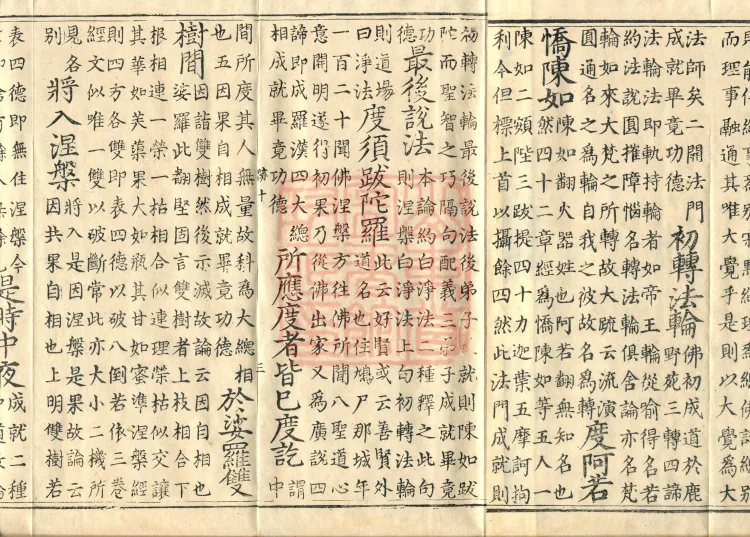 而理事融通其唯大覺也
法師矣二開法門
成就畢竟功德
初轉法輪
佛初成道於鹿
野苑三轉四諦
法輪法即軌持輪者如帝王輪從喻得名若
約法說圓摧障惱名轉法輪俱舍論亦名梵
輪如來大梵之所轉故大疏云流演
圓通名之為輪自我之彼故名為轉
度阿若
憍陳如
陳如翻火器姓也阿若翻無知名也
然四十二章經為憍陳如等五人一
陳如二頞陛三跋提四十力迦葉五摩訶拘
利今但標上首以攝餘四然此法門成就則
初轉法輪最後說法後弟子成就則陳如跋
陀而聖智之巧隔句配義三弟子成就畢竟
功德
最後說法
本論約白淨法三種釋之此句
則涅槃白淨法上句初轉法輪
則道場
曰淨法
度須跋陀羅
此云好賢或云善賢外
道名也住鳩尸那城年
一百二十聞佛涅槃方往佛所聞八聖道心
意開明遂得初果乃從佛出家又為廣說四
諦即成羅漢四大總
相成就畢竟功德
所應度者皆已度訖
謂
中
間所度其人無量故科為大總相
也五因果自相成就畢竟功德
於娑羅雙
樹間
因詣雙樹然後示滅故論云因自相也
娑羅此翻堅固言雙樹者上枝相合下
根相連一榮一枯相合似連理榮枯似交讓
其華如芙蕖果大如瓶其甘如蜜準涅槃經
則四方各雙即表四德以破八倒若依三卷
經文似唯一雙以破斷常此亦大小二機所
見各
別
將入涅槃
將入是因涅槃是果故論云
因共果自相也上明雙樹若
表四德即無住涅槃今
是時中夜
成就二種